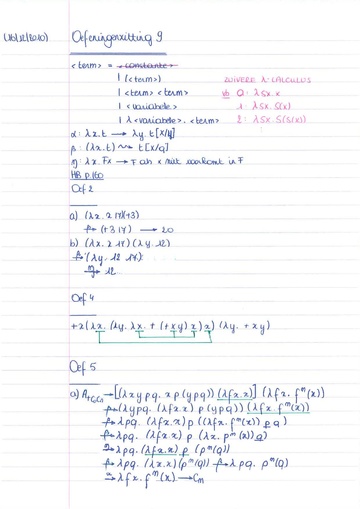 (16/12/2010) Oefeningenzitting 9
<term> = <constante>
| (<term>) ZUIVERE λ-CALCULUS
| <term> <term> vb 0: λsx.x
| <variabele> 1: λsx.s(x)
| λ<variabele>.<term> 2: λsx.s(s(x))
α: λx.t → λy.t[x/y]
β: (λx.t) → t[x/q]
η: λx.Fx → F als x niet voorkomt in F
HB p.160
Oef 2
a) (λx.x 17)(+3)
β→ (+3 17) → 20
b) (λx.x 17)(λy.12)
β→ (λy.12 17)
β→ 12
Oef 4
+x(λx.(λy.λx.+(+xy)x)x)(λy.+xy)
Oef 5
→ [(λxypq.xp(ypq))(λfx.x)](λfx.fⁿ(x))
β→ (λypq.(λfx.x)p(ypq))(λfx.fⁿ(x))
β→ λpq.(λfx.x)p((λfx.fⁿ(x))pq)
β→ λpq.(λfx.x)p(λx.pⁿ(x))q)
β→ λpq.(λfx.x)p(pⁿ(q))
β→ λpq.(λx.x)(pⁿ(q)) β→ λpq.pⁿ(q)
α→ λfx.fⁿ(x) → Cₙ